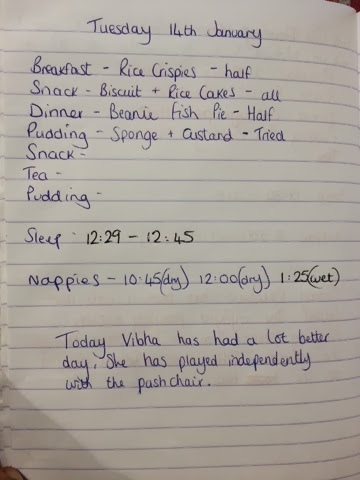 Tuesday 14th January
Breakfast - Rice Crispies - half
Snack - Biscuit + Rice Cakes - all
Dinner - Beanie Fish Pie - Half
Pudding - Sponge + Custand - Tried
Snack -
Tea -
Pudding -
Sleep - 12:29 - 12:45
Nappies - 10:45(dry) 12:00(dry) 1:25(wet)
Today Vibha has had a lot better
day. She has played independently
with the pushchair.